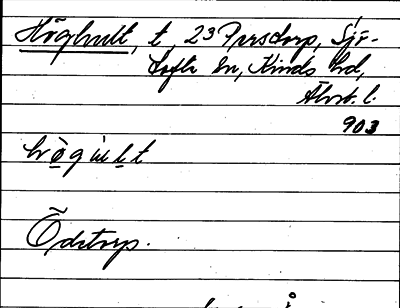 Höghult, t, 23 Perstorp, Sjö-
tofta sn, Kinds hd,
Älvsb. l.
903
hö̀gu̇lt
Ödetorp.